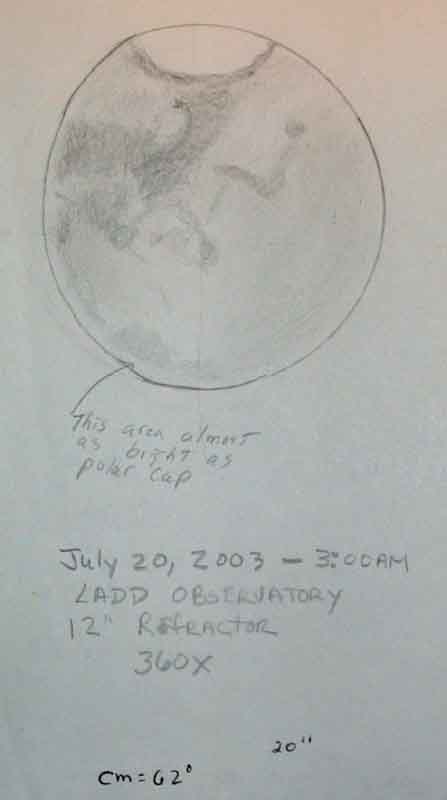 This area almost
as bright as
polar cap
July 20, 2003 - 3:00AM
LADD OBSERVATORY
12" REFRACTOR
360X
20"
cm = 62°